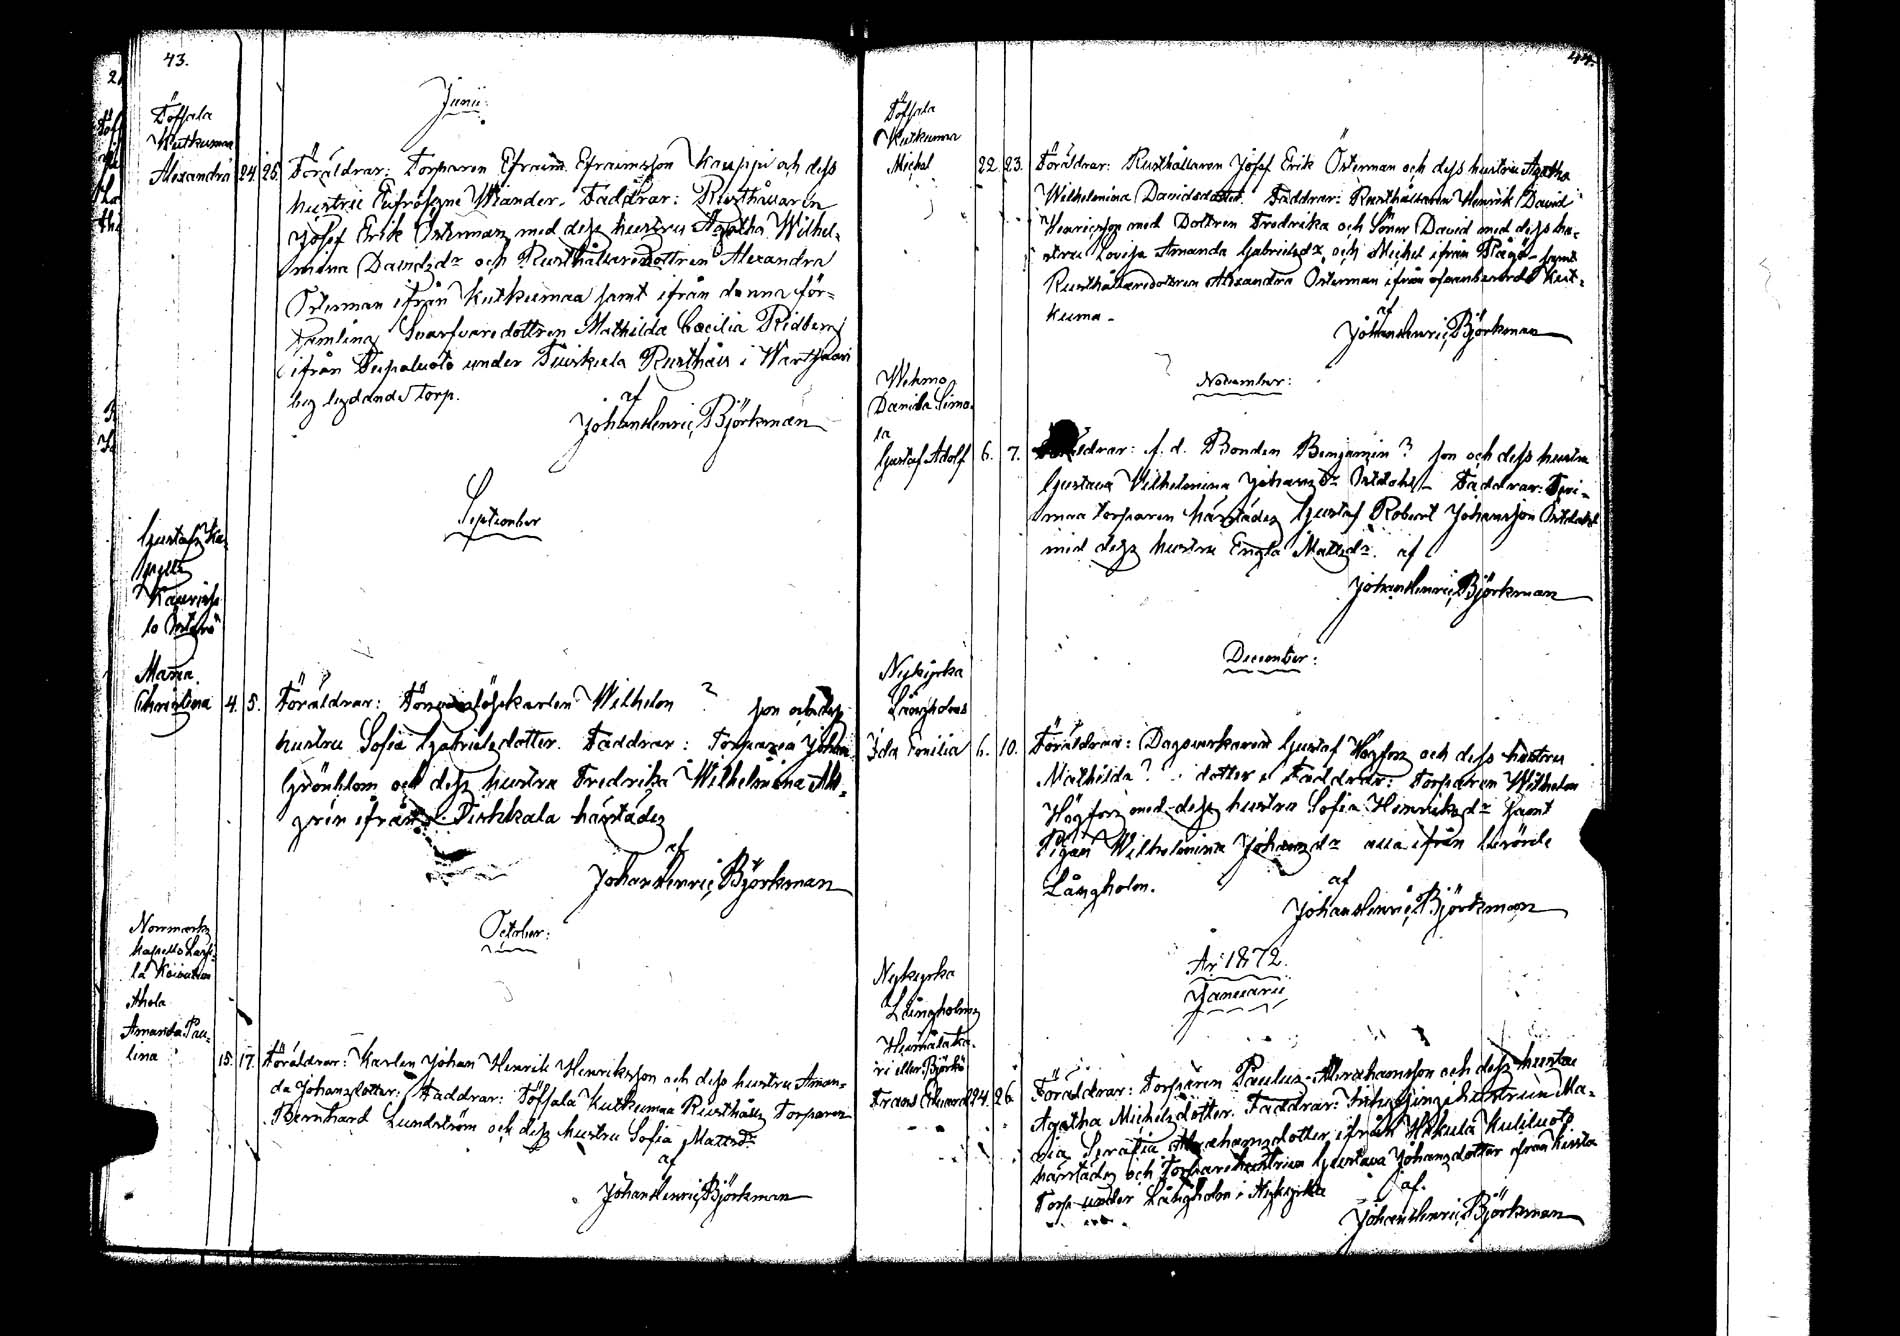 43.
Junii.
Töfsala
Kutkumaa
Alexandra 24. 25. Föräldrar: Torparen Efraim Efraimsson Kauppi och dess
hustru Eufrosyne Wiander. Faddrar: Rusthållaren
Josef Erik Österman med dess hustru Agatha Wilhel-
mina Davidsdr och Rusthållaredottren Alexandra
Österman ifrån Kutkumaa samt ifrån denna för-
samling Svarfvaredottren Mathilda Cæcilia Ridberg
ifrån under Rusthåll i
lydande torp.
af
Johan Henric Björkman
September
Gustafs Ka-
pell
Maria
Christina 4. 5. Föräldrar: Wilhelm ? son och dess
hustru Sofia Gabrielsdotter. Faddrar: Torparen Johan
Grönblom och dess hustru Fredrika Wilhelmina
ifrån härstädes
af
Johan Henric Björkman
October:
Norrmarks
Kapell
Ahola
Amanda Pau-
lina 15. 17. Föräldrar: Karlen Johan Henrik Henriksson och dess hustru Aman-
da Johansdotter. Faddrar: Töfsala Kutkumaa Rusthålls Torparen
Bernhard Lundström och dess hustru Sofia Mattsdr
af
Johan Henric Björkman
44.
Töfsala
Kutkumaa
Michel 22. 23. Föräldrar: Rusthållaren Josef Erik Österman och dess hustru Agatha
Wilhelmina Davidsdotter. Faddrar: Rusthållaren Henrik David
Henricsson med Dottren Fredrika och Sonen David med dess hu-
stru Lovisa Amanda Gabrielsdr och Michel ifrån samt
Rusthållaredottren Alexandra Österman ifrån ofvanberörde Kut-
kuma.
af
Johan Henric Björkman
November:
Wehmo
Gustaf Adolf 6. 7. Föräldrar: f. d. Bonden Benjamin ? son och dess hustru
Gustava Wilhelmina Johansdr Östdahl. Faddrar:
torparen härstädes Gustaf Robert Johansson Östdahl
med dess hustru Engla Mattsdr. af
Johan Henric Björkman
December:
Nykyrka
Långholms
Ida Emilia 6. 10. Föräldrar: Dagsverkaren Gustaf Högfors och dess hustru
Mathilda ? dotter. Faddrar: Torparen Wilhelm
Högfors med dess hustru Sofia Henriksdr samt
Pigan Wilhelmina Johansdr alla ifrån berörde
Långholm.
af
Johan Henric Björkman
År 1872.
Januarii
Nykyrka
Långholms
eller Björkö
Frans Edvard 24. 26. Föräldrar: Torparen Paulus Abrahamsson och dess hustru
Agatha Michelsdotter. Faddrar: Inhysingehustrun Ma-
ria Serafia Abrahamsdotter ifrån
härstädes och Torparehustrun Gustava Johansdotter ifrån
Torp under Långholm i Nykyrka
af
Johan Henric Björkman